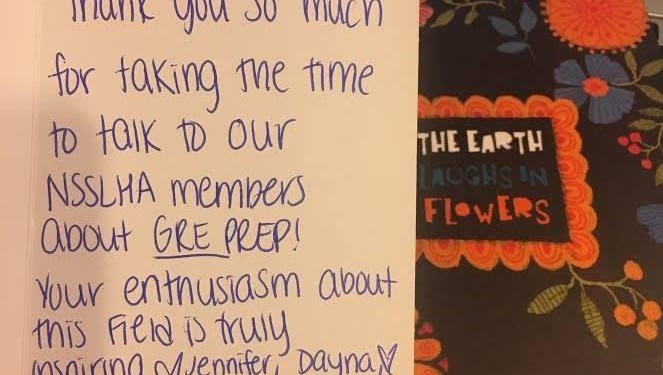 Thank you so much
for taking the time
to talk to our
NSSLHA members
about GRE PREP!
Your enthusiasm about
this field is truly
inspiring Jennifer, Dayna
THE EARTH
LAUGHS IN
FLOWERS